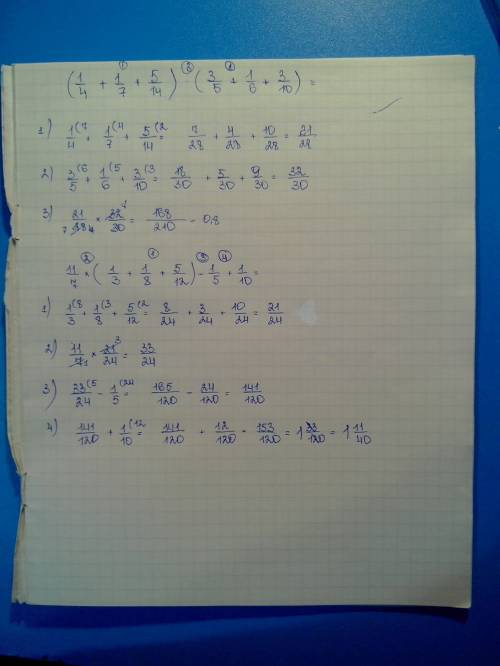 (1/4 + 1/7 + 5/14) · (3/5 + 1/6 + 3/10) =
1) 1/4 (7 + 1/7 (4 + 5/14 (2 = 7/28 + 4/28 + 10/28 = 21/28
2) 3/5 (6 + 1/6 (5 + 3/10 (3 = 18/30 + 5/30 + 9/30 = 32/30
3) 21/28 × 32/30 = 168/210 = 0.8
11/7 × (1/3 + 1/8 + 5/12) - 1/5 + 1/10 =
1) 1/3 (8 + 1/8 (3 + 5/12 (2 = 8/24 + 3/24 + 10/24 = 21/24
2) 11/7 × 21/24 = 33/24
3) 33/24 (5 - 1/5 (24 = 165/120 - 24/120 = 141/120
4) 141/120 + 1/10 (12 = 141/120 + 12/120 = 153/120 = 1 33/120 = 1 11/40